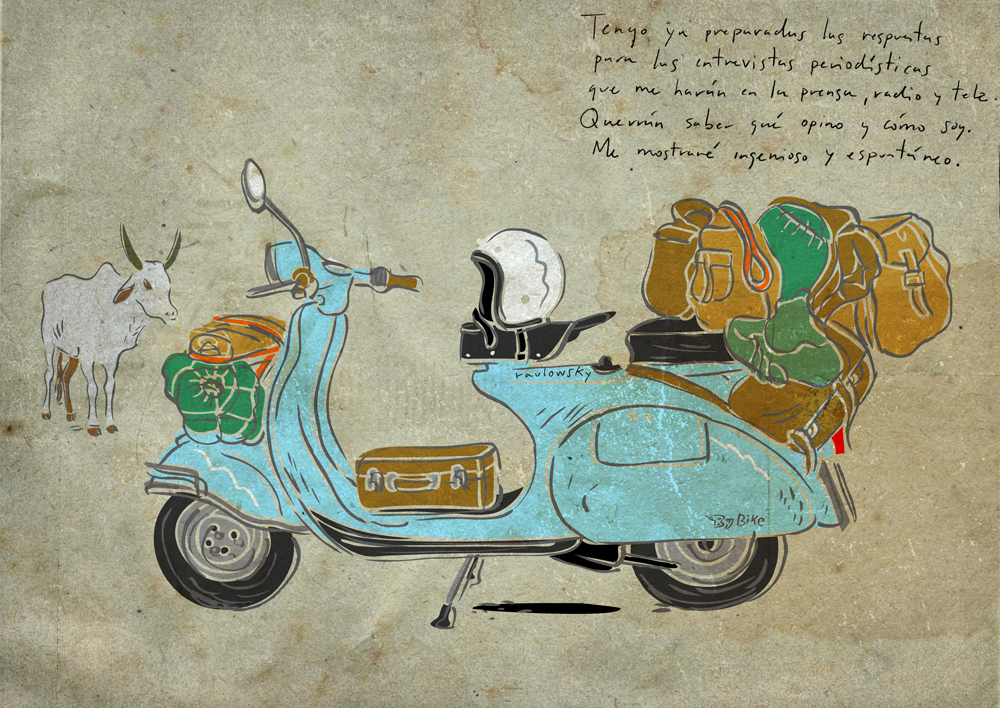 Tengo ya preparadas las respuestas
para las entrevistas periodísticas
que me harán en la prensa, radio y tele.
Querrán saber qué opino y cómo soy.
Me mostraré ingenioso y espontáneo.
raulowsky
By Bike